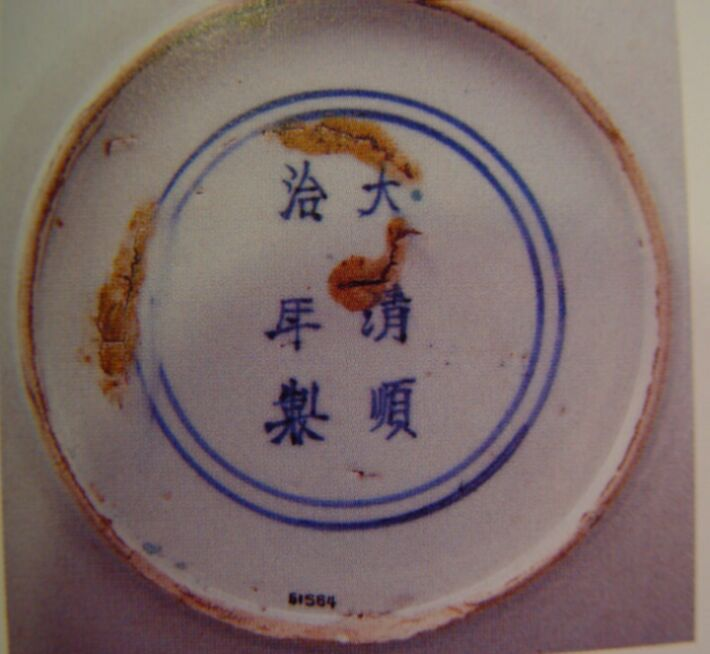 大清順
治年製
61564